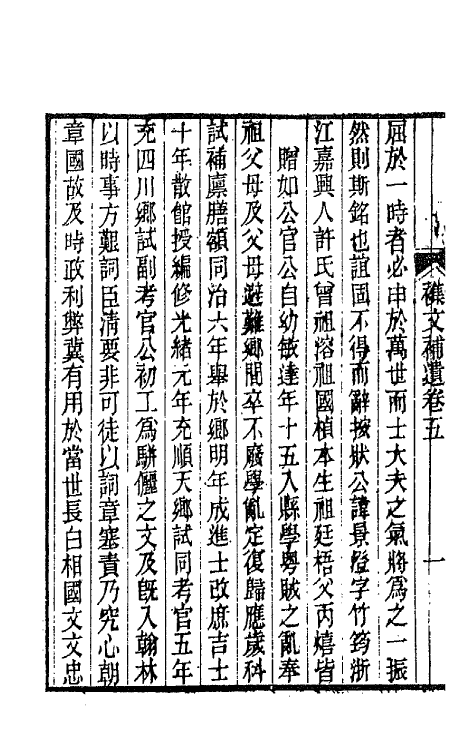 續碑傳集文補遺卷五　一
屈於一時者必申於萬世而士大夫之氣將爲之一振
然則斯銘也誼固不得而辭按狀公諱景燈字竹筠浙
江嘉興人許氏曾祖溶祖國楨本生祖廷梧父丙熺皆
贈如公官公自幼敏達年十五入縣學粤賊之亂奉
祖父母及父母避難鄉間卒不廢學亂定復歸應歲科
試補廩膳額同治六年舉於鄉明年成進士改庶吉士
十年散館授編修光緒元年充順天鄉試同考官五年
充四川鄉試副考官公初工爲駢儷之文及旣入翰林
以時事方艱詞臣淸要非可徒以詞章塞責乃究心朝
章國故及時政利弊冀有用於當世長白相國文文忠